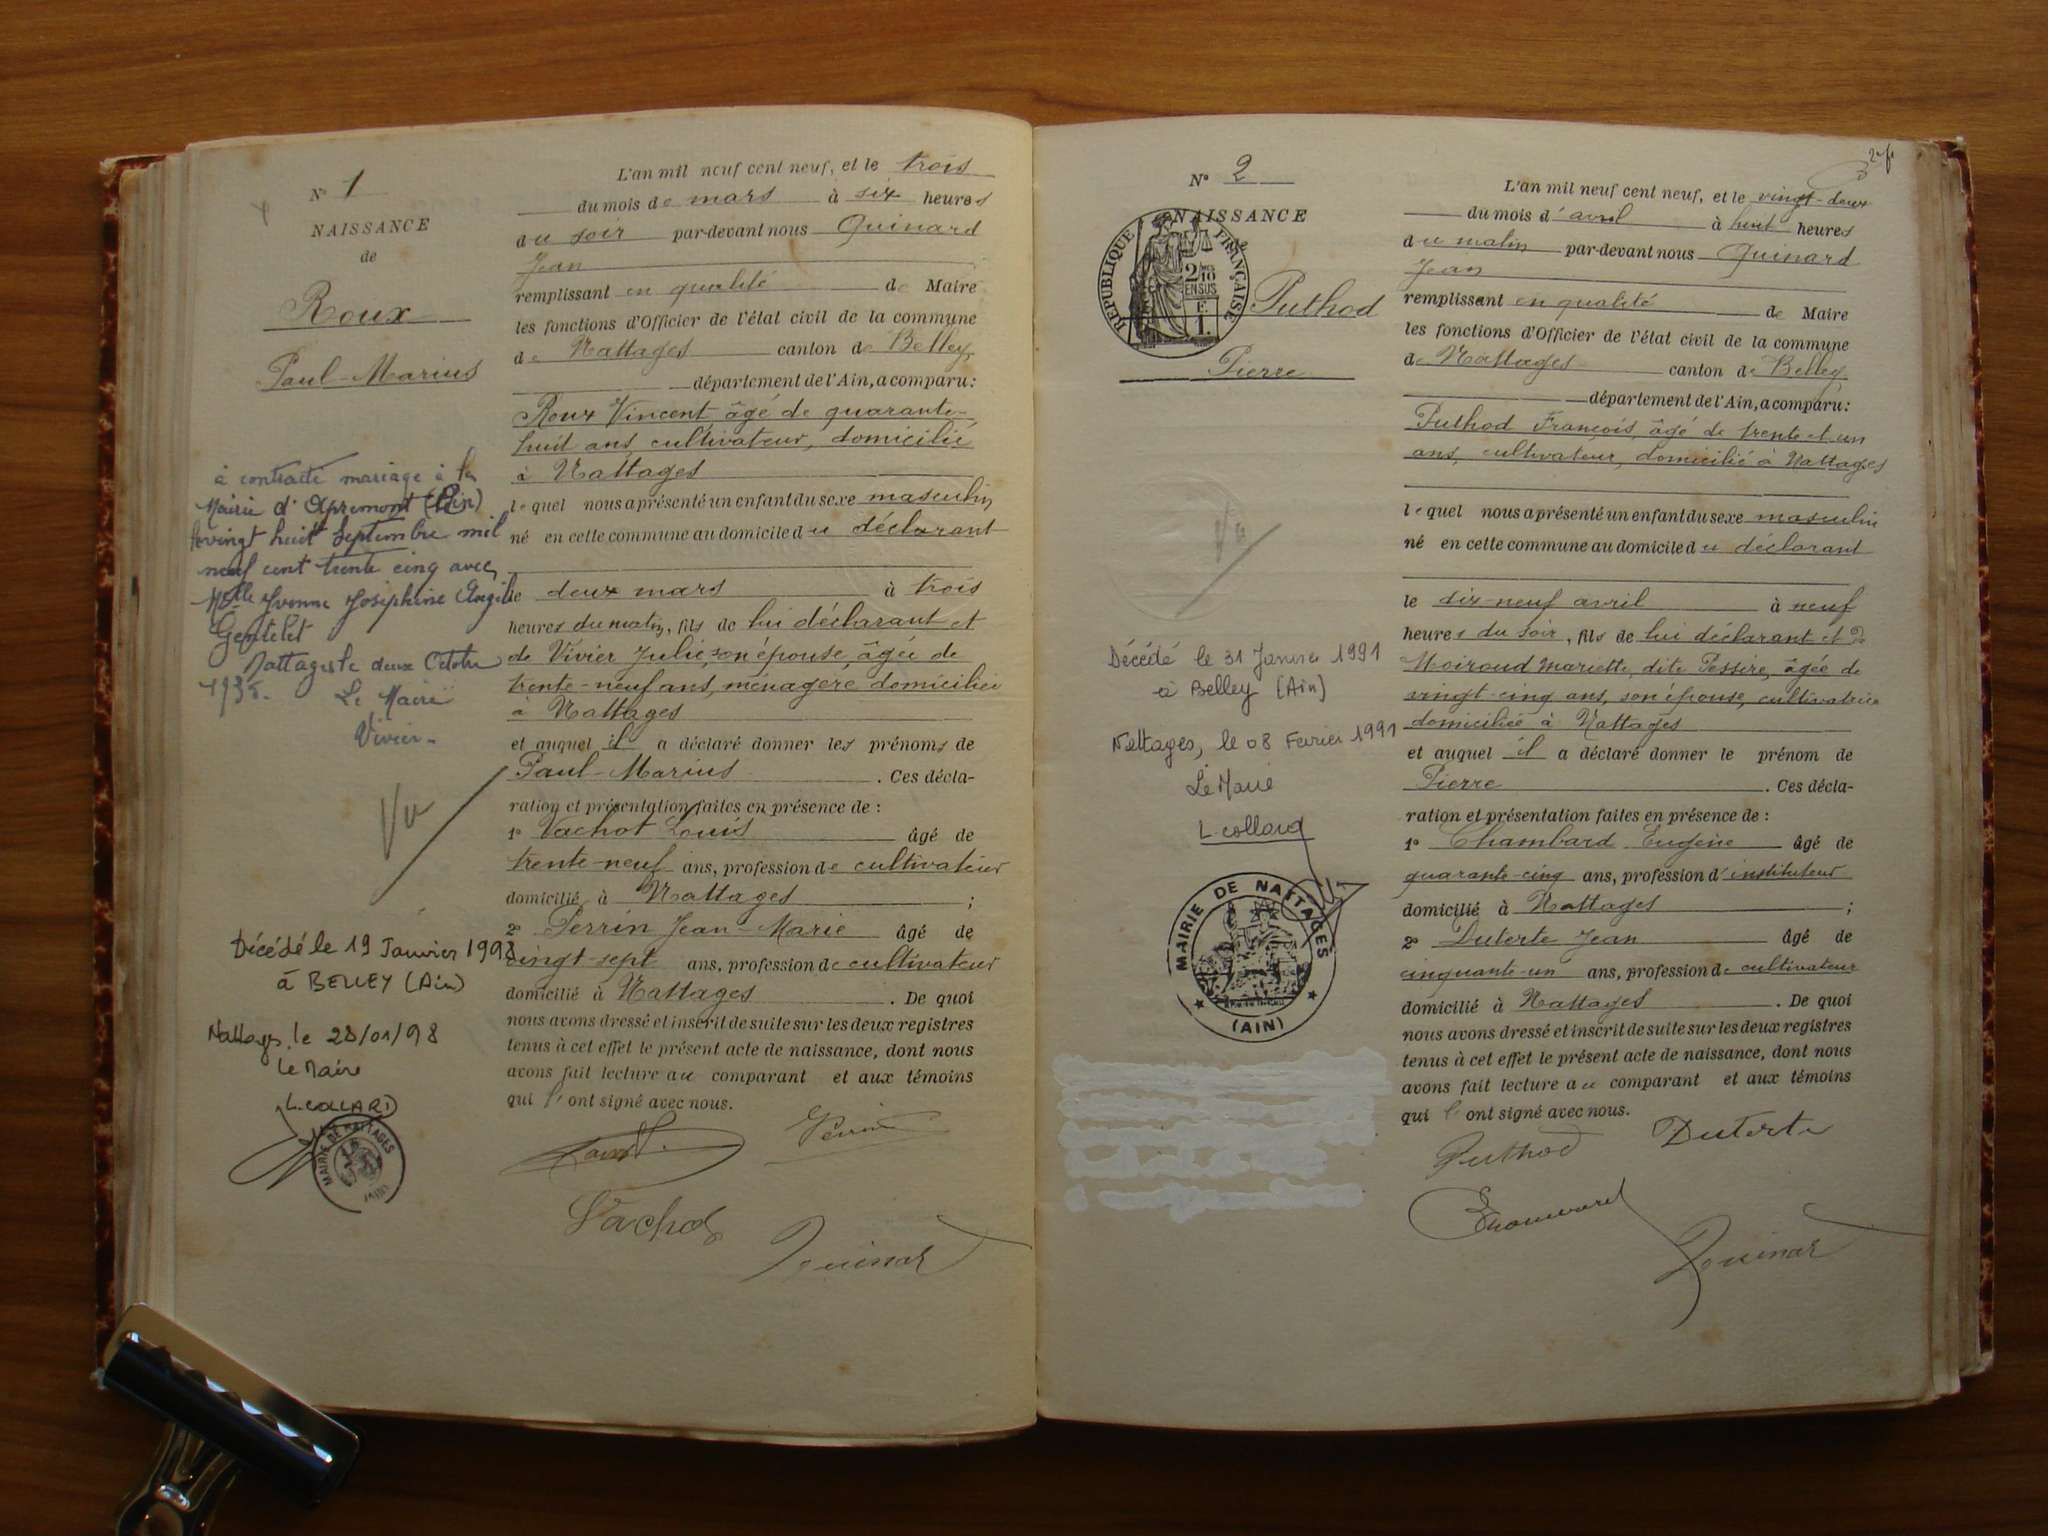 N° 1
NAISSANCE
de
Roux
Paul-Marius
à contracté mariage à la
Mairie d'Apremont (Ain)
le vingt huit Septembre mil
neuf cent trente cinq avec
Melle Yvonne Joséphine
Gentelet
Nattages le deux Octobre
1935.
Le Maire
Vivier
Vu
Décédé le 19 Janvier 1998
à BELLEY (Ain)
Nattages, le 28/01/98
Le Maire
L. COLLARD
MAIRIE DE NATTAGES
L'an mil neuf cent neuf, et le trois
du mois de mars à six heures
du soir par-devant nous Quinard
Jean
remplissant en qualité de Maire
les fonctions d'Officier de l'état civil de la commune
de Nattages canton de Belley,
département de l'Ain, a comparu:
Roux Vincent, âgé de quarante-
huit ans, cultivateur, domicilié
à Nattages
lequel nous a présenté un enfant du sexe masculin
né en cette commune au domicile du déclarant
le deux mars à trois
heures du matin, fils de lui déclarant et
de Vivier Julie, son épouse, âgée de
trente-neuf ans, ménagère domiciliée
à Nattages
et auquel il a déclaré donner les prénoms de
Paul-Marius. Ces décla-
ration et présentation faites en présence de :
1° Vachot Louis âgé de
trente-neuf ans, profession de cultivateur
domicilié à Nattages ;
2° Perrin Jean-Marie âgé de
vingt-sept ans, profession de cultivateur
domicilié à Nattages. De quoi
nous avons dressé et inscrit de suite sur les deux registres
tenus à cet effet le présent acte de naissance, dont nous
avons fait lecture au comparant et aux témoins
qui l'ont signé avec nous.
Roux V. Perrin
Vachot
Quinard
N° 2
NAISSANCE
RÉPUBLIQUE FRANÇAISE
2/10 EN SUS
F.
1.
Puthod
Pierre
Vu
Décédé le 31 Janvier 1991
à Belley (Ain)
Nattages, le 08 Fevrier 1991
Le Maire
L. collard
MAIRIE DE NATTAGES
(AIN)
2e f
L'an mil neuf cent neuf, et le vingt-deux
du mois d'avril à huit heures
du matin par-devant nous Quinard
Jean
remplissant en qualité de Maire
les fonctions d'Officier de l'état civil de la commune
de Nattages canton de Belley
département de l'Ain, a comparu:
Puthod François, âgé de trente et un
ans, cultivateur, domicilié à Nattages
lequel nous a présenté un enfant du sexe masculin
né en cette commune au domicile du déclarant
le dix-neuf avril à neuf
heures du soir, fils de lui déclarant et de
Moiroud Mariette, dite Pessire, âgée de
vingt-cinq ans, son épouse, cultivatrice
domiciliée à Nattages
et auquel il a déclaré donner le prénom de
Pierre. Ces décla-
ration et présentation faites en présence de :
1° Chambard Eugène âgé de
quarante-cinq ans, profession d'instituteur
domicilié à Nattages ;
2° Duterte Jean âgé de
cinquante-un ans, profession de cultivateur
domicilié à Nattages. De quoi
nous avons dressé et inscrit de suite sur les deux registres
tenus à cet effet le présent acte de naissance, dont nous
avons fait lecture au comparant et aux témoins
qui l'ont signé avec nous.
Puthod Duterte
EChambard
Quinard